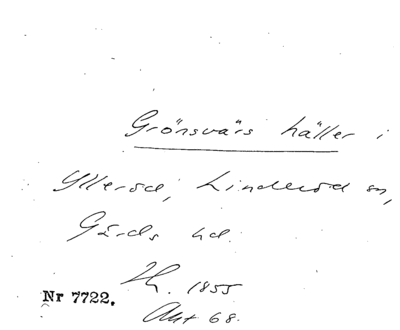 Grönsvärs häller i
Ylleröd, Linderöd sn,
Gärds hd.
Th. 1855
Nr 7722.
Akt 68.